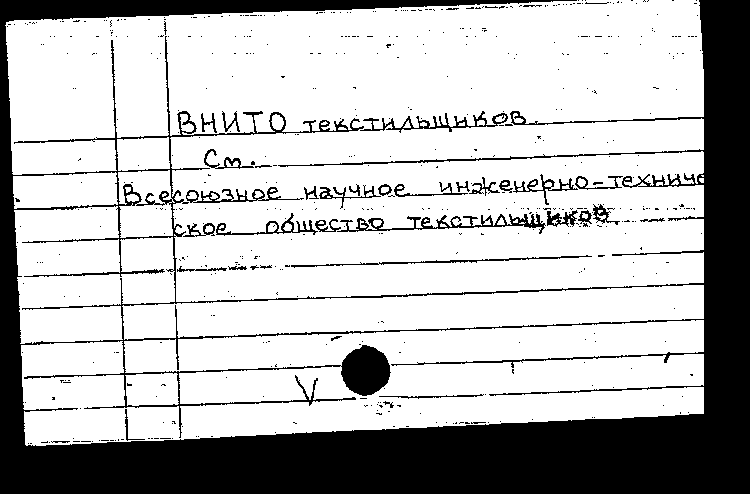 ВНИТО текстильщиков.
См.
Всесоюзное научное инженерно-техниче
ское общество текстильщиков.
V